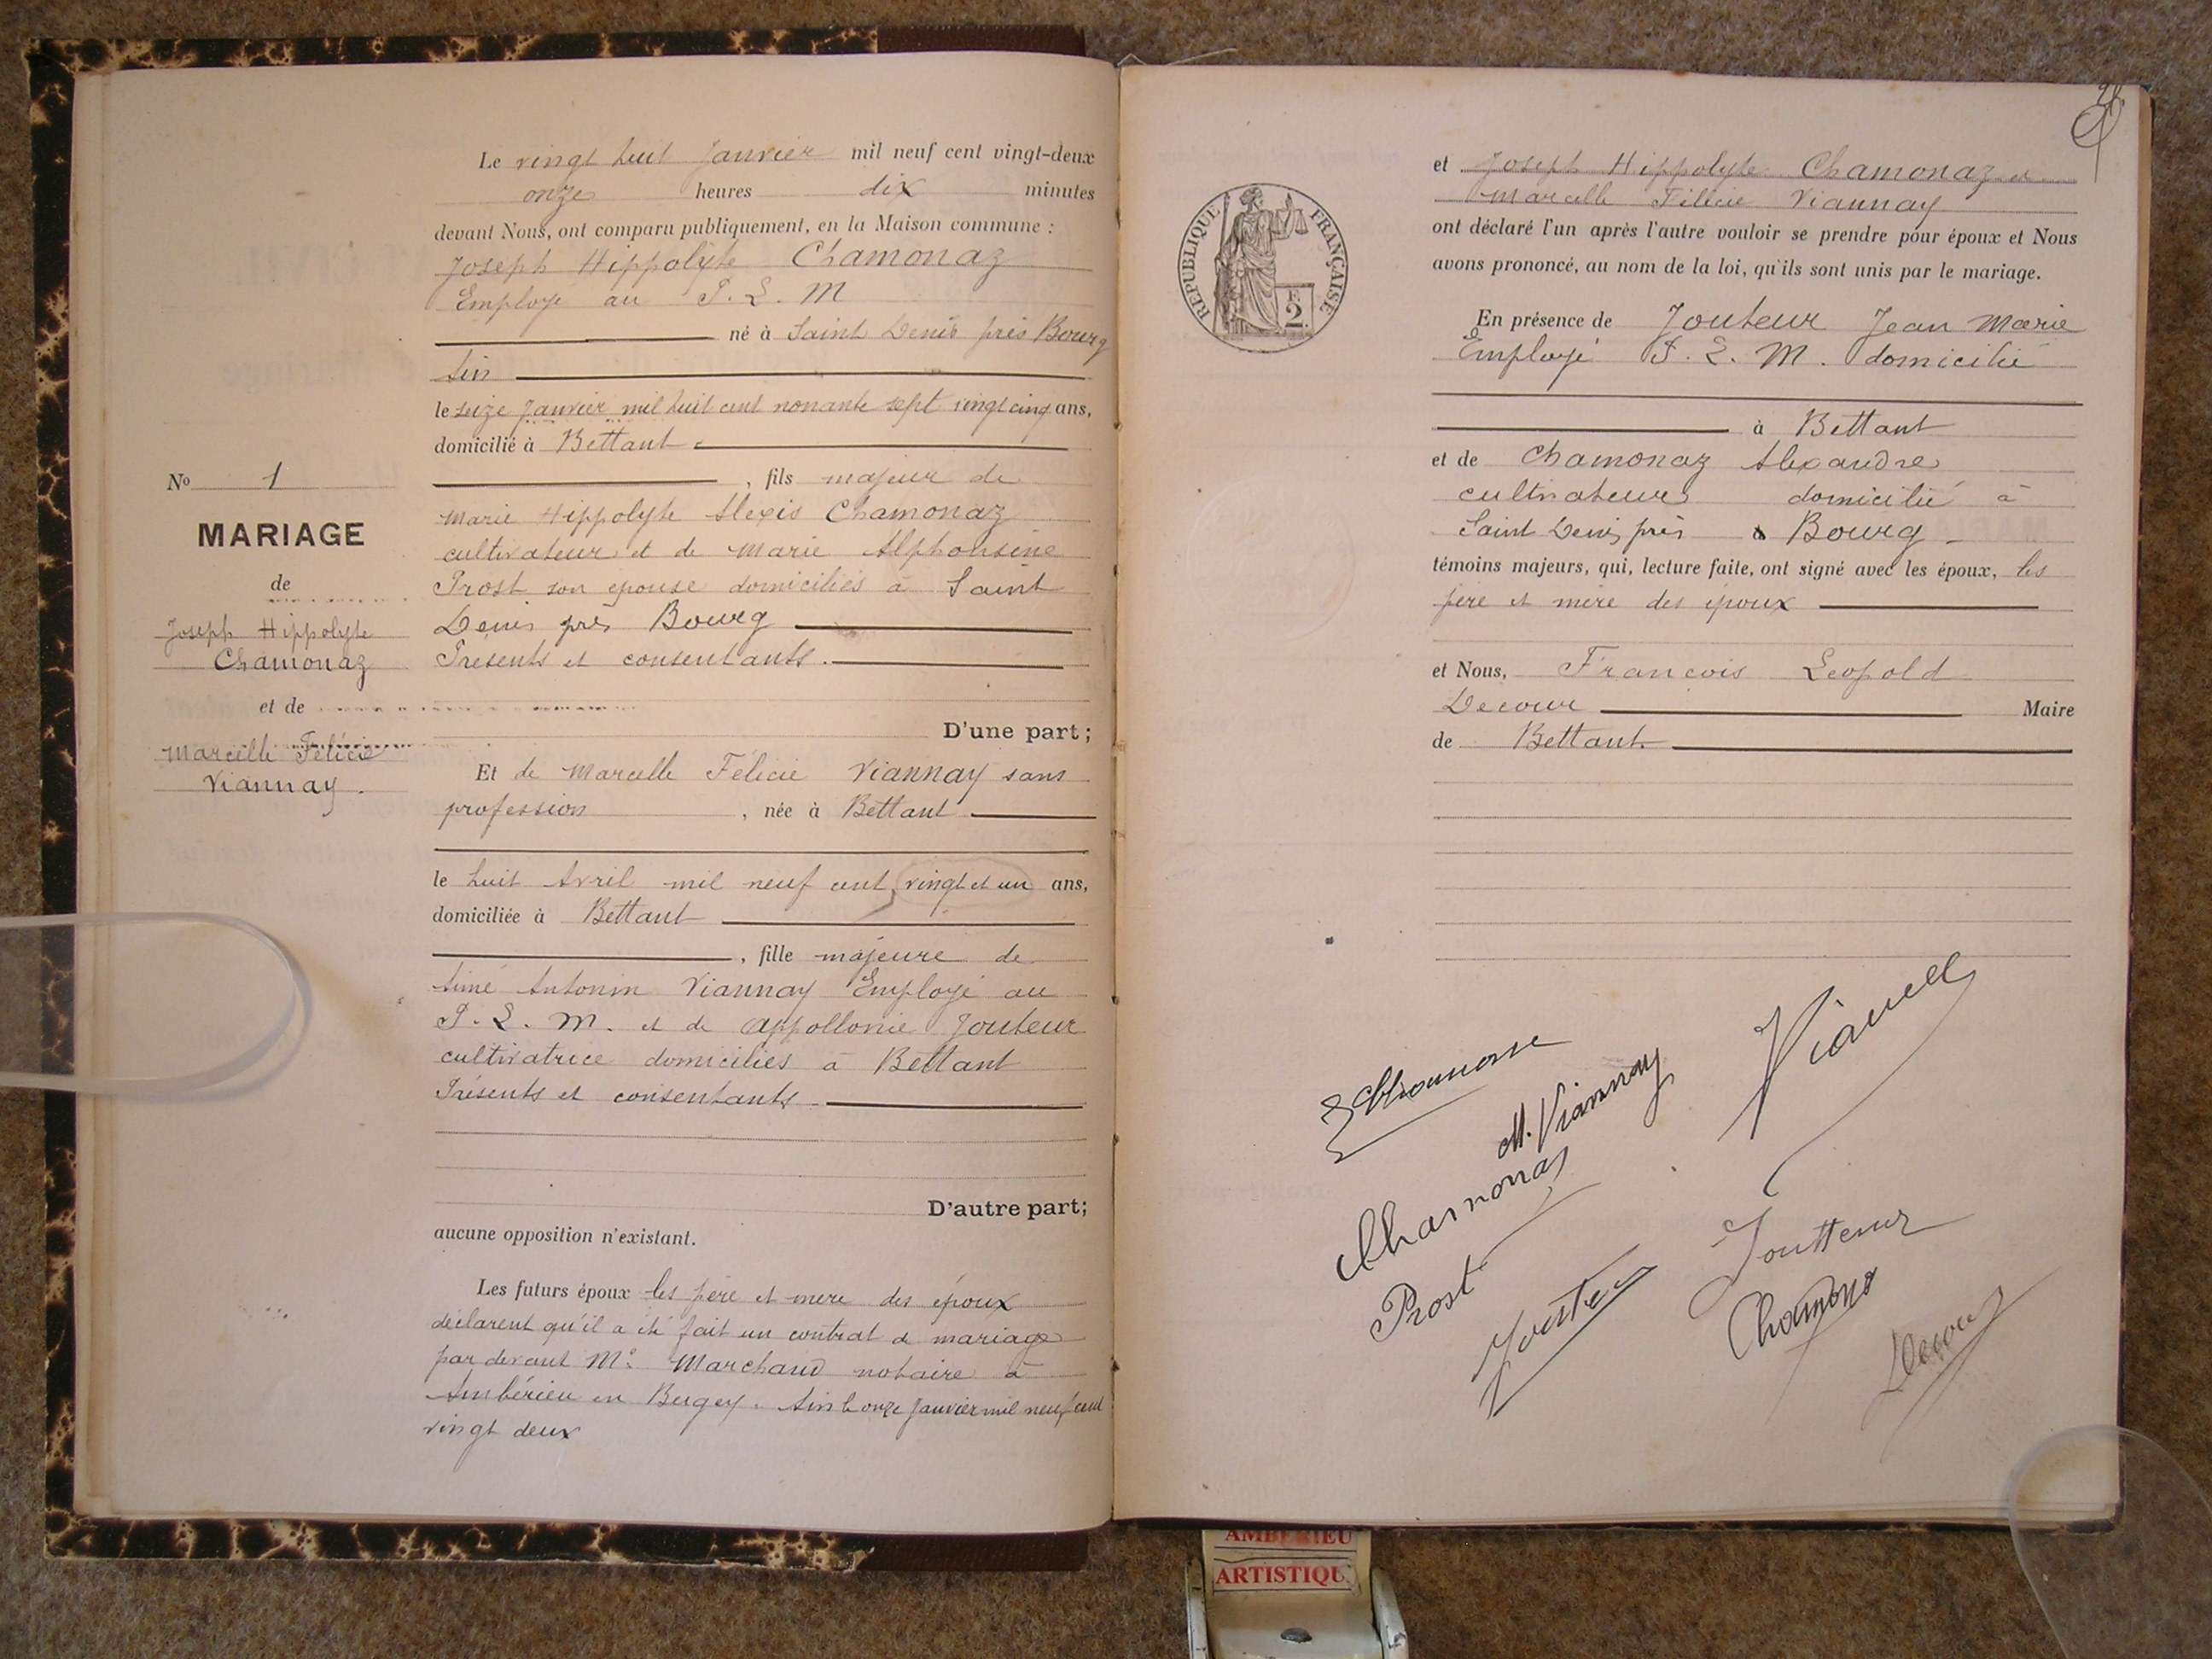 Le vingt huit Janvier mil neuf cent vingt-deux
onze heures dix minutes
devant Nous, ont comparu publiquement, en la Maison commune :
Joseph Hippolyte Chamonaz
Employé au P. L. M
né à Saint Denis près Bourg
Ain
le seize Janvier mil huit cent nonante sept vingt cinq ans,
domicilié à Bettant
, fils majeur de
Marie Hippolyte Alexis Chamonaz
cultivateur et de Marie Alphonsine
Prost son épouse domiciliés à Saint
Denis près Bourg
Présents et consentants.
D'une part;
No 1
MARIAGE
de
Joseph Hippolyte
Chamonaz
et de
Marcelle Félicie
Viannay.
Et de Marcelle Félicie Viannay sans
profession, née à Bettant
le huit Avril mil neuf cent, vingt et un ans,
domiciliée à Bettant
, fille majeure de
Aimé Antonin Viannay Employé au
P. L. M. et de Appollonie Jouteur
cultivatrice domiciliés à Bettant
Présents et consentants
D'autre part;
aucune opposition n'existant.
Les futurs époux les père et mere des époux
déclarent qu'il a été fait un contrat de mariage
par devant Me Marchand notaire à
Ambérieu en Bugey. Ain le onze Janvier mil neuf cent
vingt deux
RÉPUBLIQUE FRANÇAISE
F.
2
et Joseph Hippolyte Chamonaz et
Marcelle Félicie Viannay
ont déclaré l'un après l'autre vouloir se prendre pour époux et Nous
avons prononcé, au nom de la loi, qu'ils sont unis par le mariage.
En présence de Jouteur Jean Marie
Employé P. L. M. domicilié
à Bettant
et de Chamonaz Alexandre
cultivateur domicilié à
Saint Denis près à Bourg
témoins majeurs, qui, lecture faite, ont signé avec les époux, les
père et mere des époux
et Nous, Francois Leopold
Decour Maire
de Bettant.
M. Viannay
Chamonaz
Prost
Joutteur
Decour
AMBERIEU
ARTISTIQU